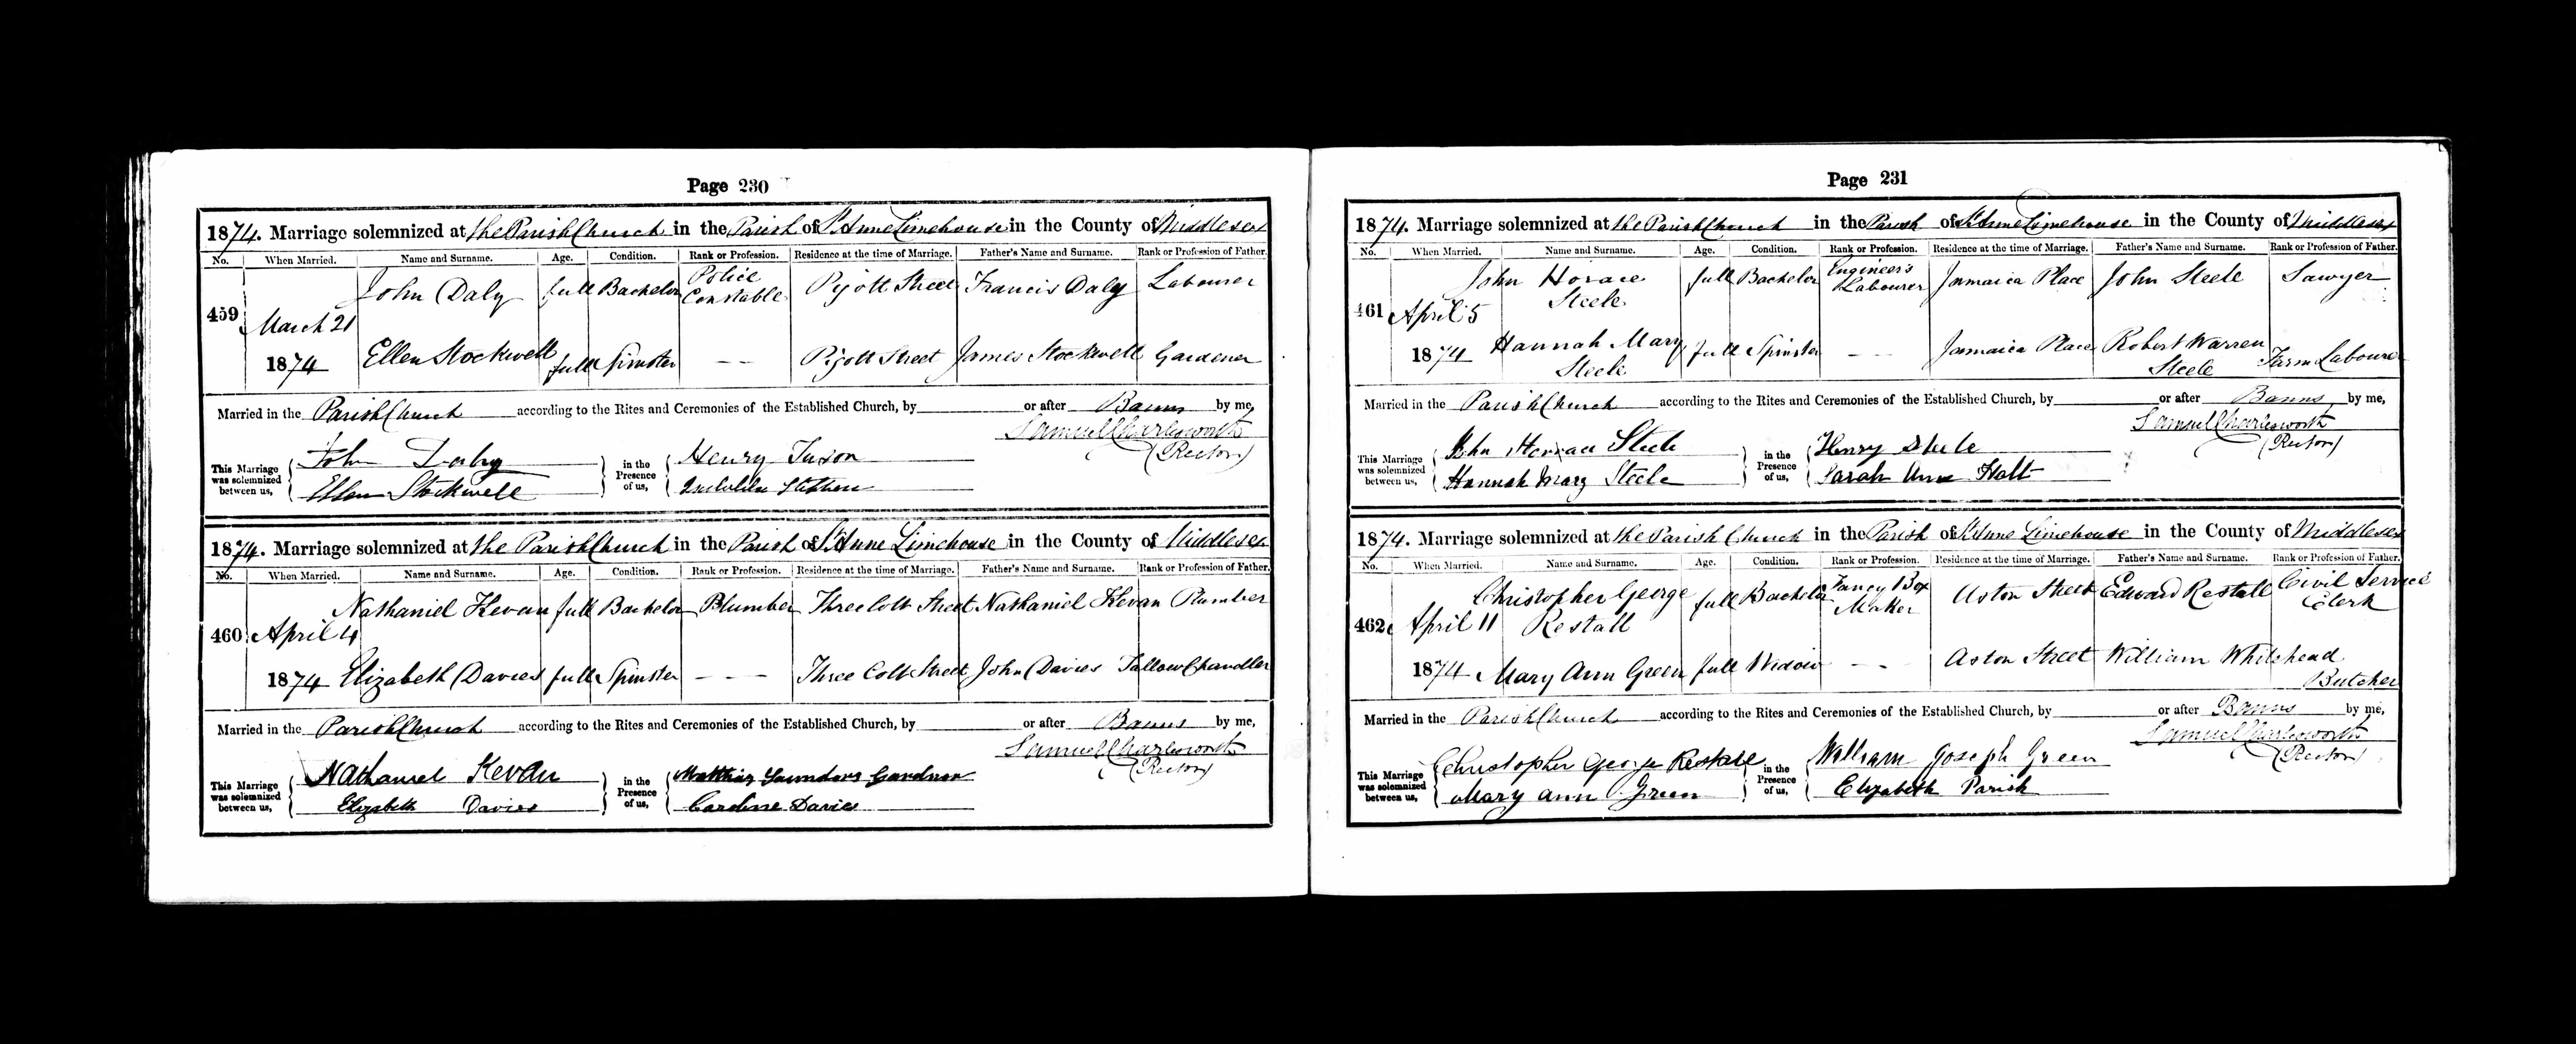 Page 230
1874. Marriage solemnized at the Parish Church in the Parish of St Anne Limehouse in the County of Middlesex
No. When Married. Name and Surname. Age. Condition. Rank or Profession. Residence at the time of Marriage. Father's Name and Surname. Rank or Profession of Father.
459 March 21 John Daly full Bachelor Police Constable Pigott Street Francis Daly Labourer
1874 Ellen Stockwell full Spinster — — Pigott Street James Stockwell Gardener
Married in the Parish Church according to the Rites and Ceremonies of the Established Church, by or after Banns by me,
Samuel Charlesworth
(Rector)
This Marriage was solemnized between us, John Daly Ellen Stockwell in the Presence of us, Henry Stephen
1874. Marriage solemnized at the Parish Church in the Parish of St Anne Limehouse in the County of Middlesex
No. When Married. Name and Surname. Age. Condition. Rank or Profession. Residence at the time of Marriage. Father's Name and Surname. Rank or Profession of Father.
460 April 4 Nathaniel Kevan full Bachelor Plumber Three Colt Street Nathaniel Kevan Plumber
1874 Elizabeth Davies full Spinster — — — Three Colt Street John Davies Tallow Chandler
Married in the Parish Church according to the Rites and Ceremonies of the Established Church, by or after Banns by me,
Samuel Charlesworth
(Rector)
This Marriage was solemnized between us, Nathaniel Kevan Elizabeth Davies in the Presence of us, Matthias Saunders Gardner Caroline Davies
Page 231
1874. Marriage solemnized at the Parish Church in the Parish of St Anne Limehouse in the County of Middlesex
No. When Married. Name and Surname. Age. Condition. Rank or Profession. Residence at the time of Marriage. Father's Name and Surname. Rank or Profession of Father.
461 April 5 John Horace Steele full Bachelor Engineer's Labourer Jamaica Place John Steele Sawyer
1874 Hannah Mary Steele full Spinster — — Jamaica Place Robert Warren Steele Farm Labourer
Married in the Parish Church according to the Rites and Ceremonies of the Established Church, by or after Banns by me,
Samuel Charlesworth
(Rector)
This Marriage was solemnized between us, John Horrace Steele Hannah Mary Steele in the Presence of us, Henry Steele Sarah Ann Holt
1874. Marriage solemnized at the Parish Church in the Parish of St Anne Limehouse in the County of Middlesex
No. When Married. Name and Surname. Age. Condition. Rank or Profession. Residence at the time of Marriage. Father's Name and Surname. Rank or Profession of Father.
462 April 11 Christopher George Restall full Bachelor Fancy Box Maker Aston Street Edward Restall Civil Service Clerk
1874 Mary Ann Green full Widow — — Aston Street William Whitehead Butcher
Married in the Parish Church according to the Rites and Ceremonies of the Established Church, by or after Banns by me,
Samuel Charlesworth
(Rector)
This Marriage was solemnized between us, Christopher George Restall Mary Ann Green in the Presence of us, William Joseph Green Elizabeth Parish